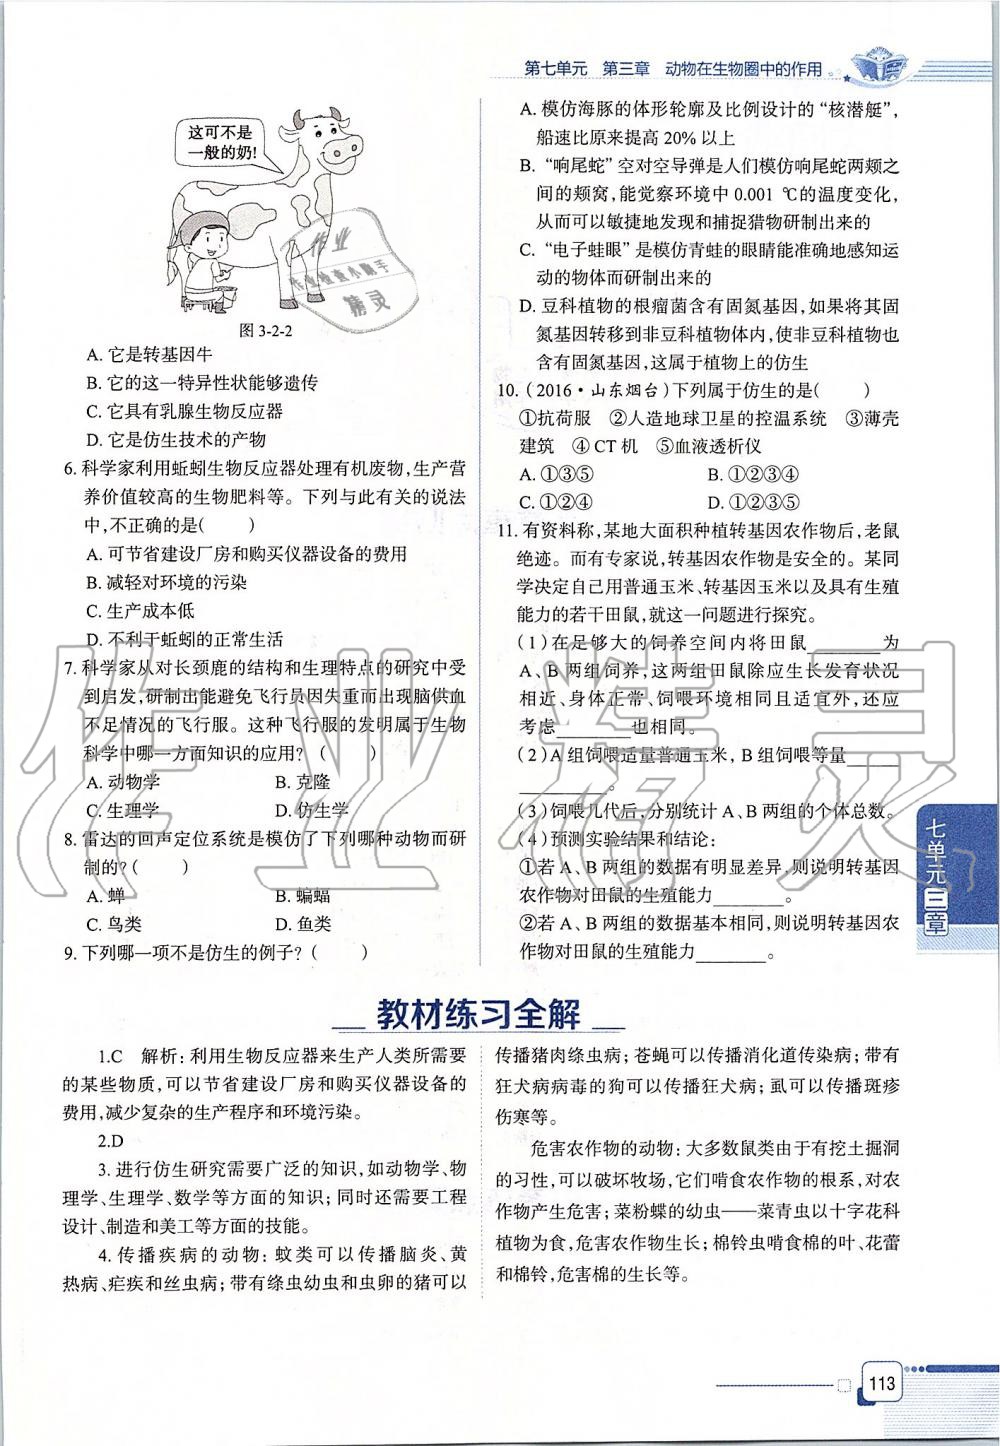 第七单元 第三章 动物在生物圈中的作用
这可不是
一般的奶!
图 3-2-2
A. 它是转基因牛
B. 它的这一特异性状能够遗传
C. 它具有乳腺生物反应器
D. 它是仿生技术的产物
6. 科学家利用蚯蚓生物反应器处理有机废物,生产营
养价值较高的生物肥料等。下列与此有关的说法
中,不正确的是( )
A. 可节省建设厂房和购买仪器设备的费用
B. 减轻对环境的污染
C. 生产成本低
D. 不利于蚯蚓的正常生活
7. 科学家从对长颈鹿的结构和生理特点的研究中受
到启发,研制出能避免飞行员因失重而出现脑供血
不足情况的飞行服。这种飞行服的发明属于生物
科学中哪一方面知识的应用? ( )
A. 动物学 B. 克隆
C. 生理学 D. 仿生学
8. 雷达的回声定位系统是模仿了下列哪种动物而研
制的? ( )
A. 蝉 B. 蝙蝠
C. 鸟类 D. 鱼类
9. 下列哪一项不是仿生的例子? ( )
A. 模仿海豚的体形轮廓及比例设计的“核潜艇”,
船速比原来提高 20% 以上
B. “响尾蛇”空对空导弹是人们模仿响尾蛇两颊之
间的颊窝,能觉察环境中 0.001 ℃的温度变化,
从而可以敏捷地发现和捕捉猎物研制出来的
C. “电子蛙眼”是模仿青蛙的眼睛能准确地感知运
动的物体而研制出来的
D. 豆科植物的根瘤菌含有固氮基因,如果将其固
氮基因转移到非豆科植物体内,使非豆科植物也
含有固氮基因,这属于植物上的仿生
10. (2016·山东烟台)下列属于仿生的是( )
①抗荷服 ②人造地球卫星的控温系统 ③薄壳
建筑 ④CT 机 ⑤血液透析仪
A. ①③⑤ B. ①②③④
C. ①②④ D. ①②③⑤
11. 有资料称,某地大面积种植转基因农作物后,老鼠
绝迹。而有专家说,转基因农作物是安全的。某同
学决定自己用普通玉米、转基因玉米以及具有生殖
能力的若干田鼠,就这一问题进行探究。
(1)在足够大的饲养空间内将田鼠________为
A、B 两组饲养,这两组田鼠除应生长发育状况
相近、身体正常、饲喂环境相同且适宜外,还应
考虑________也相同。
(2)A 组饲喂适量普通玉米,B 组饲喂等量______
________。
(3)饲喂几代后,分别统计 A、B 两组的个体总数。
(4)预测实验结果和结论:
①若 A、B 两组的数据有明显差异,则说明转基因
农作物对田鼠的生殖能力________。
②若 A、B 两组的数据基本相同,则说明转基因农
作物对田鼠的生殖能力________。
七单元三章
教材练习全解
1.C 解析:利用生物反应器来生产人类所需要
的某些物质,可以节省建设厂房和购买仪器设备的
费用,减少复杂的生产程序和环境污染。
2.D
3. 进行仿生研究需要广泛的知识,如动物学、物
理学、生理学、数学等方面的知识;同时还需要工程
设计、制造和美工等方面的技能。
4. 传播疾病的动物:蚊类可以传播脑炎、黄
热病、疟疾和丝虫病;带有绦虫幼虫和虫卵的猪可以
传播猪肉绦虫病;苍蝇可以传播消化道传染病;带有
狂犬病病毒的狗可以传播狂犬病;虱可以传播斑疹
伤寒等。
危害农作物的动物:大多数鼠类由于有挖土掘洞
的习性,可以破坏牧场,它们啃食农作物的根系,对农
作物产生危害;菜粉蝶的幼虫——菜青虫以十字花科
植物为食,危害农作物生长;棉铃虫啃食棉的叶、花蕾
和棉铃,危害棉的生长等。
113
作业精灵